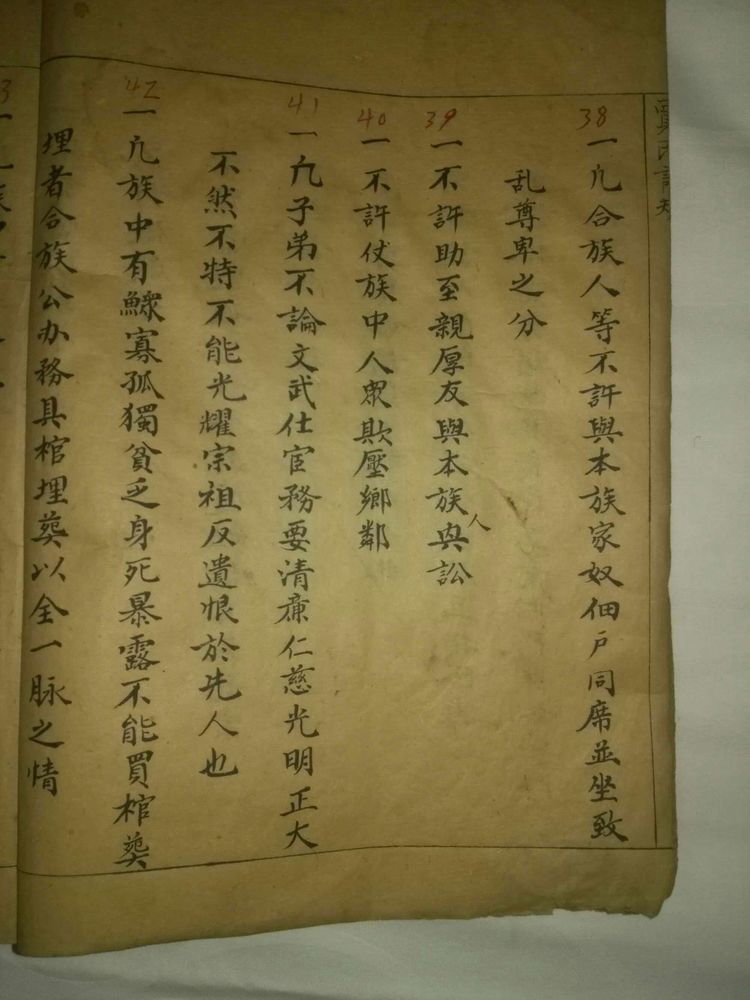 38
一凢合族人等不許與本族家奴佃户同席並坐致
乱尊卑之分
39
一不許助至親厚友與本族人興訟
40
一不許仗族中人眾欺壓鄉鄰
41
一凢子弟不論文武仕宦務要清廉仁慈光明正大
不然不特不能光耀宗祖反遺恨於先人也
42
一凢族中有鰥寡孤獨貧乏身死暴露不能買棺葬
埋者合族公办務具棺埋葬以全一脉之情